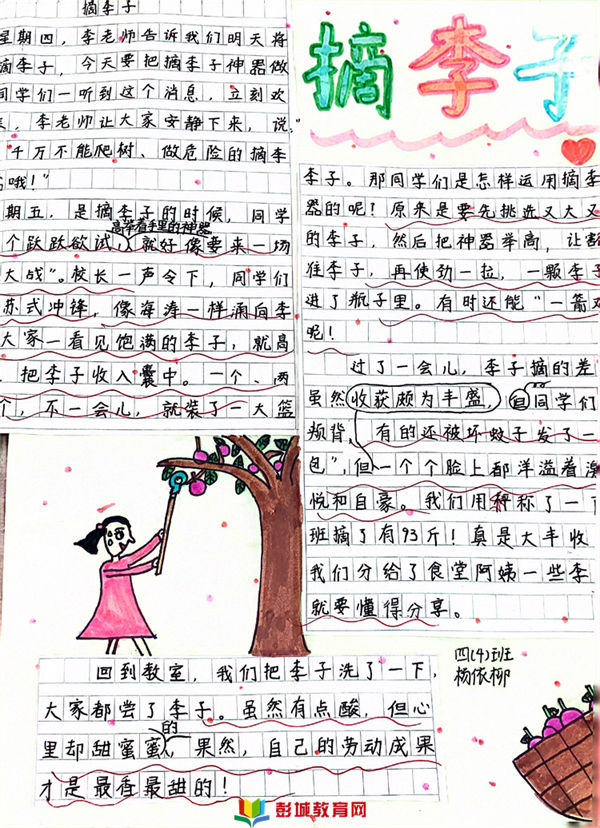 摘李子
星期四，李老师告诉我们明天将
摘李子，今天要把摘李子神器做
同学们一听到这个消息，立刻欢
李老师让大家安静下来，说
"千万不能爬树、做危险的摘李
哦！"
期五，是摘李子的时候，同学
高举着手里的神器
个跃跃欲试，就好像要来一场
大战"。校长一声令下，同学们
苏式冲锋，像海涛一样涌向李
大家一看见饱满的李子，就高
把李子收入囊中。一个、两
个，不一会儿，就装了一大篮
摘李子
李子。那同学们是怎样运用摘李
器的呢！原来是要先挑选又大又
的李子，然后把神器举高，让
准李子，再使劲一拉，一颗李子
进了瓶子里。有时还能"一箭双
呢！
过了一会儿，李子摘的差
虽然收获颇为丰盛，同学们
颊背，有的还被坏蚊子发了一
包"，但一个个脸上都洋溢着
悦和自豪。我们用秤称了一下
班摘了有93斤！真是大丰收
我们分给了食堂阿姨一些李
就要懂得分享。
四(4)班
杨依柳
回到教室，我们把李子洗了一下，
大家都尝了李子。虽然有点酸，但心
的
里却甜蜜蜜，果然，自己的劳动成果
才是最香最甜的！
彭城教育网